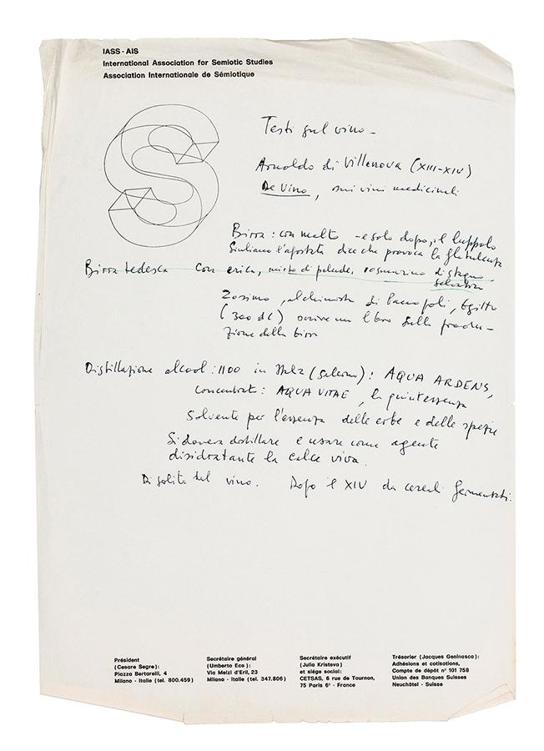 IASS - AIS
International Association for Semiotic Studies
Association Internationale de Sémiotique
Testi sul vino -
Arnaldo di Villenova (XIII-XIV)
De Vino, sui vini medicinali
Birra: con malto - e solo dopo, il luppolo
Giuliano l'apostata dice che provoca la flatulenza
Birra tedesca con erica, mirto di palude, rosmarino di stagno
selvatico
Zosimo, alchimista di Panopoli, Egitto
(300 dC) scrive un libro sulla produ-
zione della birra
Distillazione alcool: 1100 in Italia (Salerno): AQUA ARDENS,
concentrata: AQUA VITAE, la quintessenza
Solvente per l'essenza delle erbe e delle spezie
Si doveva distillare e usare come agente
disidratante la calce viva.
Di solito dal vino. Dopo il XIV da cereali fermentati.
Président
(Cesare Segre):
Piazza Bertarelli, 4
Milano - Italie (tel. 800.459)
Secrétaire général
(Umberto Eco):
Via Melzi d'Eril, 23
Milano - Italie (tel. 347.806)
Secrétaire exécutif
(Julia Kristeva)
et siège social:
CETSAS, 6 rue de Tournon,
75 Paris 6e - France
Trésorier (Jacques Geninasca):
Adhésions et cotisations,
Compte de dépôt n° 101 758
Union des Banques Suisses
Neuchâtel - Suisse